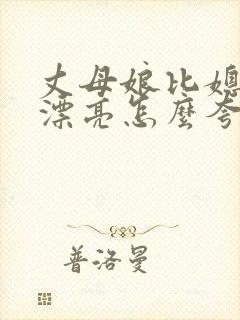 丈母娘比媳
漂亮怎麼夸
普洛曼